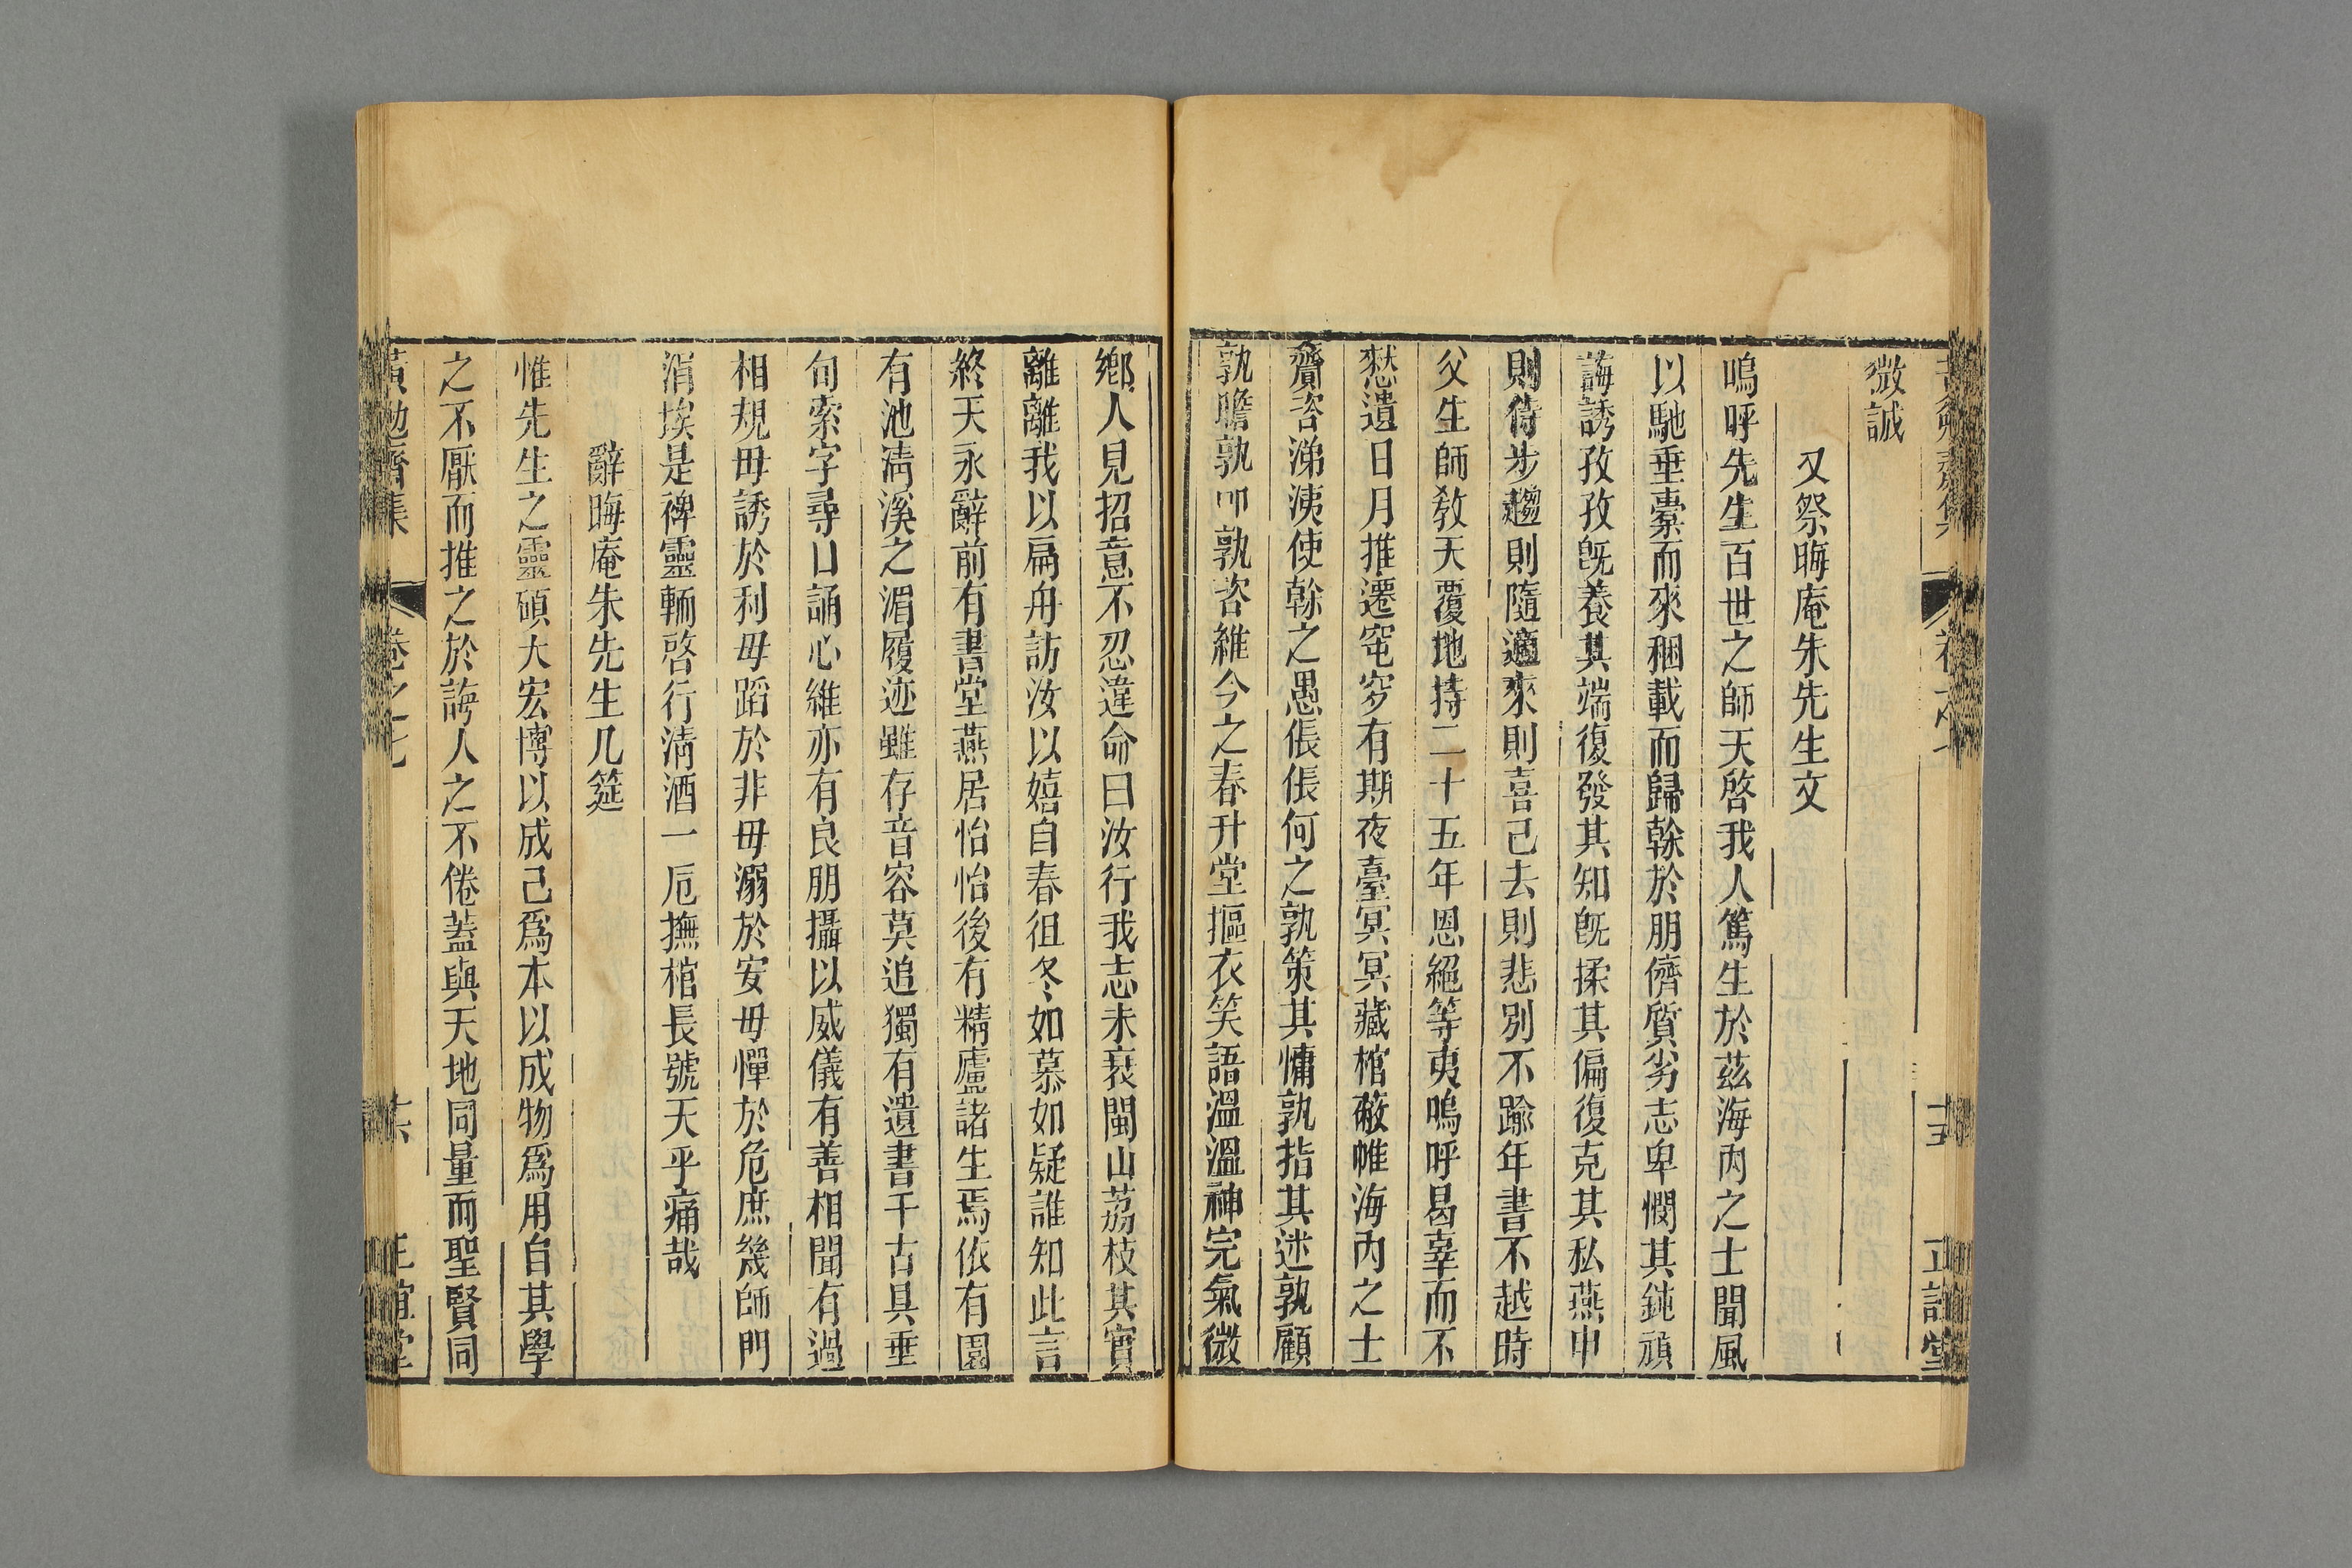 微誠
又祭晦庵朱先生文
嗚呼先生百世之師天啓我人篤生於茲海內之士聞風
以馳垂橐而來稛載而歸榦於朋儕質劣志卑憫其鈍頑
誨誘孜孜旣養其端復發其知旣揉其偏復克其私燕申
則侍步趨則隨適來則喜己去則悲別不踰年書不越時
父生師敎天覆地持二十五年恩絕等夷嗚呼曷辜而不
憖遺日月推遷窀穸有期夜臺冥冥藏棺蔽帷海內之士
齎咨涕洟使榦之愚倀倀何之孰策其慵孰指其迷孰顧
孰瞻孰叩孰咨維今之春升堂摳衣笑語溫溫神完氣微
鄉人見招意不忍違命曰汝行我志未衰閩山荔枝其實
離離我以扁舟訪汝以嬉自春徂冬如慕如疑誰知此言
終天永辭前有書堂燕居怡怡後有精廬諸生焉依有園
有池淸溪之湄履迹雖存音容莫追獨有遺書千古具垂
句索字尋口誦心維亦有良朋攝以威儀有善相聞有過
相規毋誘於利毋蹈於非毋溺於安毋憚於危庶幾師門
涓埃是裨靈輀啓行淸酒一卮撫棺長號天乎痛哉
辭晦庵朱先生几筵
惟先生之靈碩大宏博以成己爲本以成物爲用自其學
之不厭而推之於誨人之不倦蓋與天地同量而聖賢同
黃勉齋集
卷之七
正誼堂